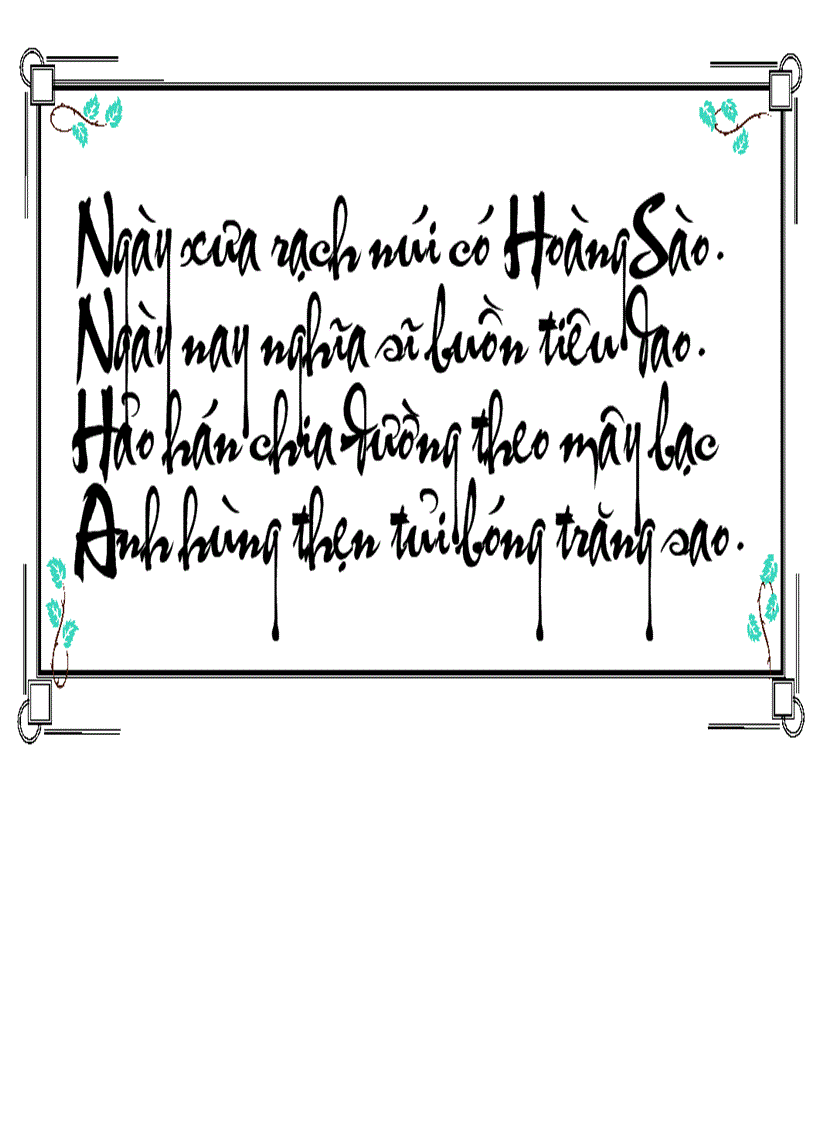 Ngày xưa rạch núi có Hoàng Sào.
Ngày nay nghĩa sĩ buồn tiêu dao.
Hảo hán chia đường theo mây bạc
Anh hùng thẹn tủi bóng trăng sao.